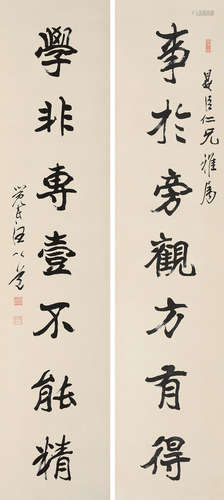 仁兄雅屬
事於旁觀方有得
學非專壹不能精